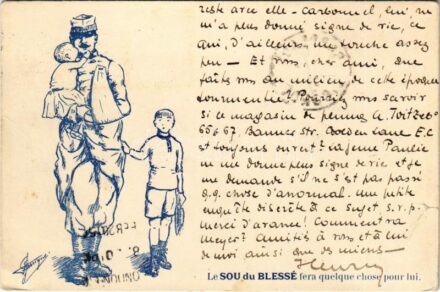 reste avec elle – Carbonnel, lui, ne
m'a plus donné signe de vie, ce
qui, d'ailleurs, me touche assez
peu – Et vous, cher ami, que
faites vous au milieu de cette époque
tourmentée? Pourriez vous savoir
si le magasin de penny A.
65 & 67, Banner str. Golden Lane E.C
est toujours ouvert? La jeune Pauline
ne me donne plus signe de vie et je
me demande s'il ne s'est pas passé
q.q. chose d'anormal. Une petite
enquête discrète à ce sujet s.v.p.
merci d'avance! Comment va
Meyer? Amitiés à vous et à lui
de moi ainsi que des miens –
Henry
Le SOU du BLESSÉ fera quelque chose pour lui.